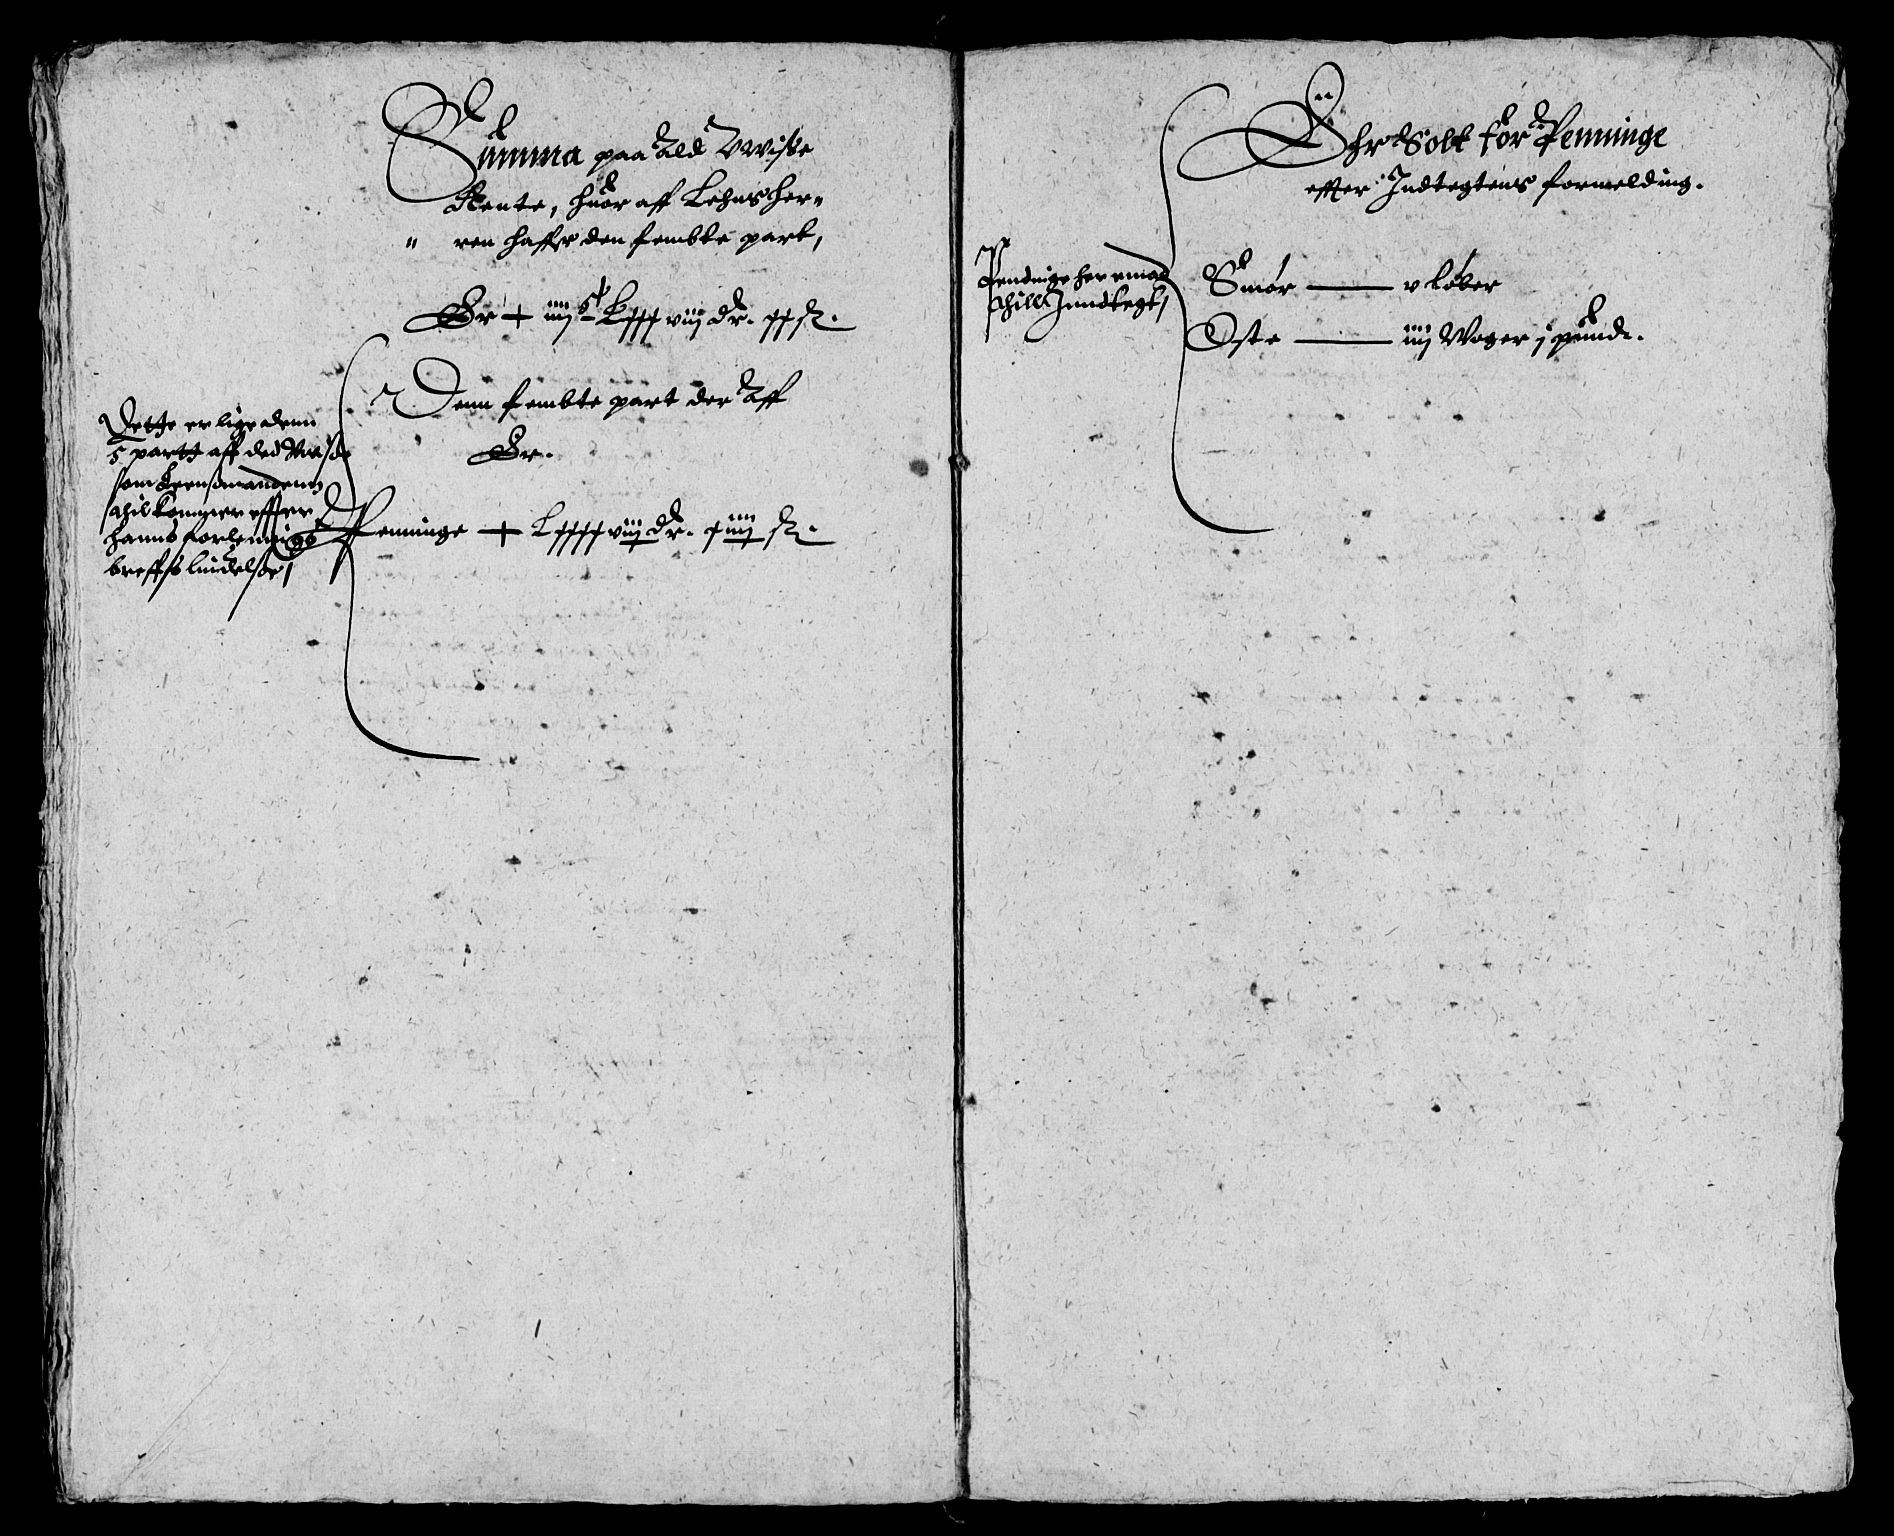 Summa paa Ald Vwiße
Rente, huor aff Lehnsher-
ren haffer den fembte part,
Er + iiij c Lxxx viij dr. xx ß.
Denn fembte part der Aff
Er.
Penninge + Lxxxx viij dr. x iiij ß.
Dette er lige denn
5 partt aff ded Wiße
som Leensmandenn
thil kommer effter
hanns forlenings
breffs liudelße
Ehr Solt for Penninge
effter Indtegtens formelding.
Pendinge her emod
thill Inndtegt
Smør — v Løber
Oste — iiij Woger j pundt.